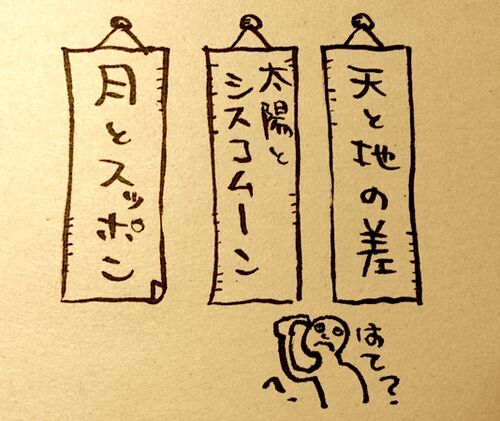 天と地の差
太陽と
シスコムーン
月とスッポン
はて?